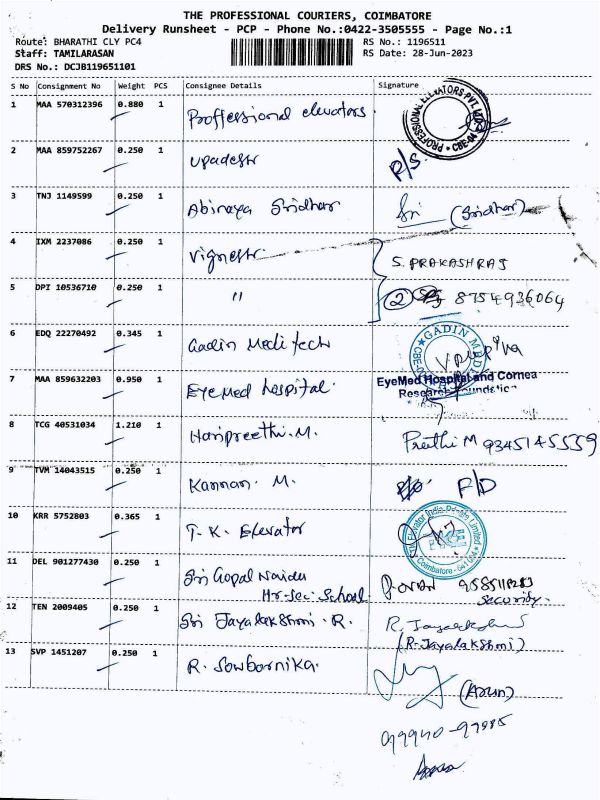 THE PROFESSIONAL COURIERS, COIMBATORE
Delivery Runsheet - PCP - Phone No.:0422-3505555 - Page No.:1
Route: BHARATHI CLY PC4 RS No.: 1196511
Staff: TAMILARASAN RS Date: 28-Jun-2023
DRS No.: DCJB119651101
S No Consignment No Weight PCS Consignee Details Signature
1 MAA 570312396 0.880 1 Proffessional elevators. PROFESSIONAL ELEVATORS PVT. LTD. CBE-04
2 MAA 859752267 0.250 1 upadesh R/S.
3 TNJ 1149599 0.250 1 Abinaya Sridhar Sri (Sridhar)
4 IXM 2237086 0.250 1 Vignesh. S. PRAKASHRAJ
5 DPI 10536710 0.250 1 " 2 8754936064
6 EDQ 22270492 0.345 1 Gadin Meditech GADIN MEDI
7 MAA 859632203 0.950 1 EyeMed hospital. EyeMed Hospital and Cornea
Research Foundation
8 TCG 40531034 1.210 1 Haripreethi.M. Preethi M 9345145559
9 TVM 14043515 0.250 1 Kannan. M. F/D
10 KRR 5752803 0.365 1 T. K. Elevator Elevator India Private Limited Coimbatore
11 DEL 901277430 0.250 1 Sri Gopal Naidu
Hr-Sec-School security.
12 TEN 2009405 0.250 1 Sri Jayalakshmi.R. R. Jayalakshmi
(R.Jayalakshmi)
13 SVP 1451207 0.250 1 R. Sowbarnika. (Arun)